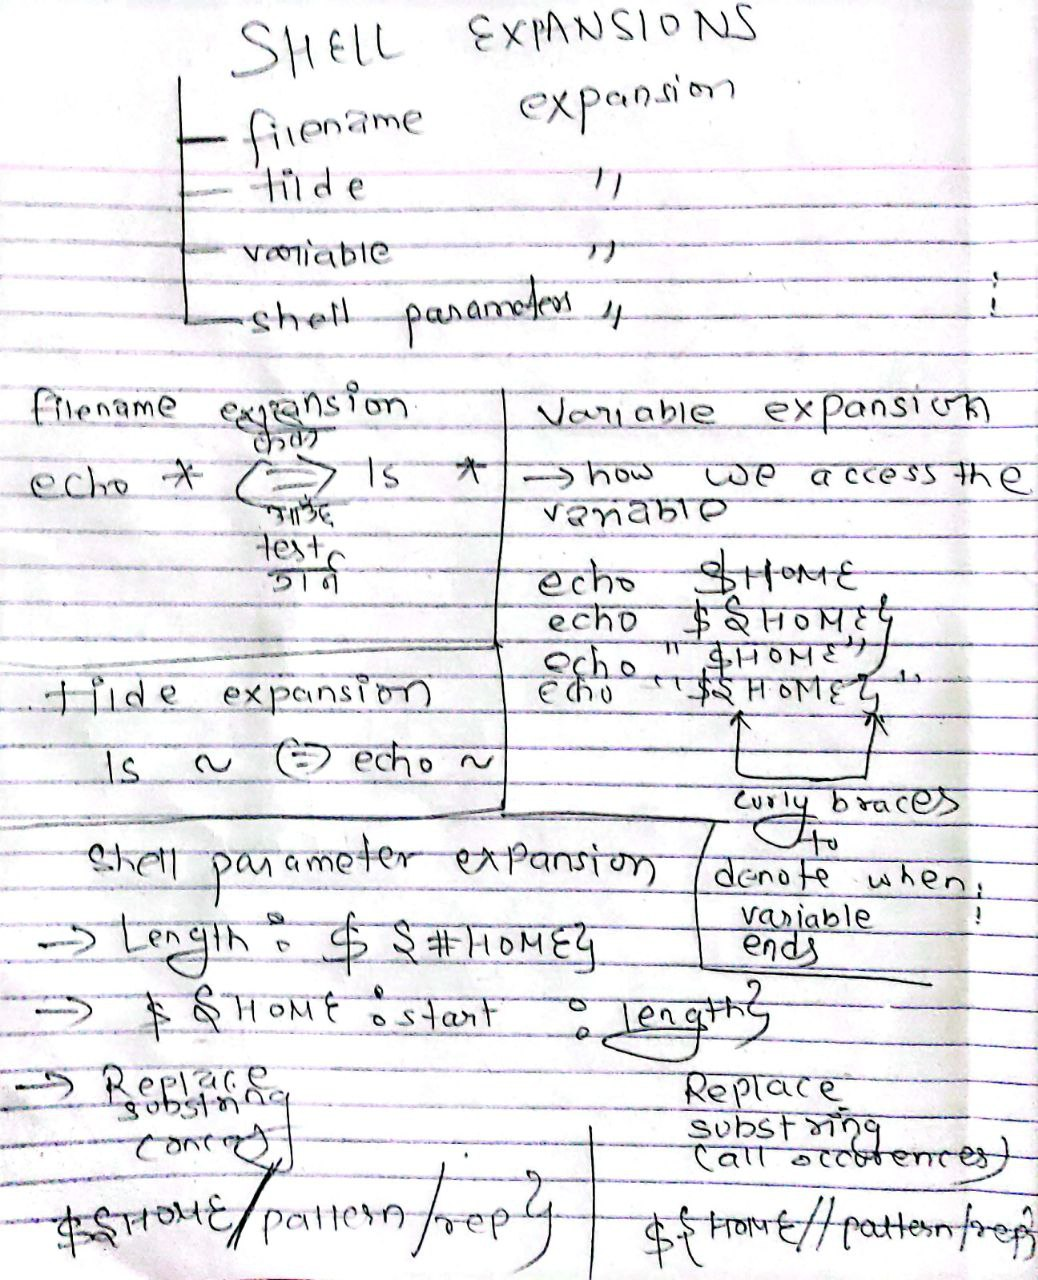 SHELL EXPANSIONS
filename expansion
tilde "
variable "
shell parameters "
filename expansion
echo * <=> ls *
test
Tilde expansion
ls ~ <=> echo ~
Variable expansion
→ how we access the
variable
echo $HOME
echo ${HOME}
echo "$HOME"
echo "${HOME}"
curly braces
to
denote when
variable
ends
Shell parameter expansion
→ Length : ${#HOME}
→ ${HOME : start : length}
→ Replace
substring
(once)
${HOME/pattern/rep}
Replace
substring
(all occurences)
${HOME//pattern/rep}